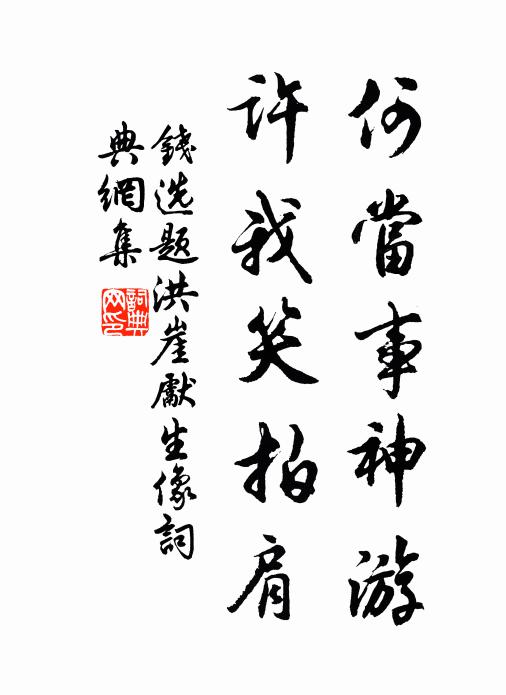 何當事神游
許我笑拍肩
錢选題洪崖獻生像詞
典網集
詞典
网印